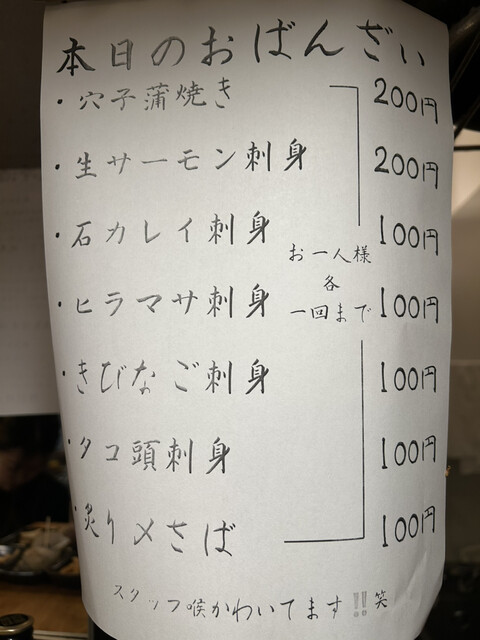 本日のおばんざい
・穴子蒲焼き 200円
・生サーモン刺身 200円
・石カレイ刺身 100円
お一人様
各
一回まで
・ヒラマサ刺身 100円
・きびなご刺身 100円
・タコ頭刺身 100円
・炙り〆さば 100円
スタッフ喉かわいてます!!笑